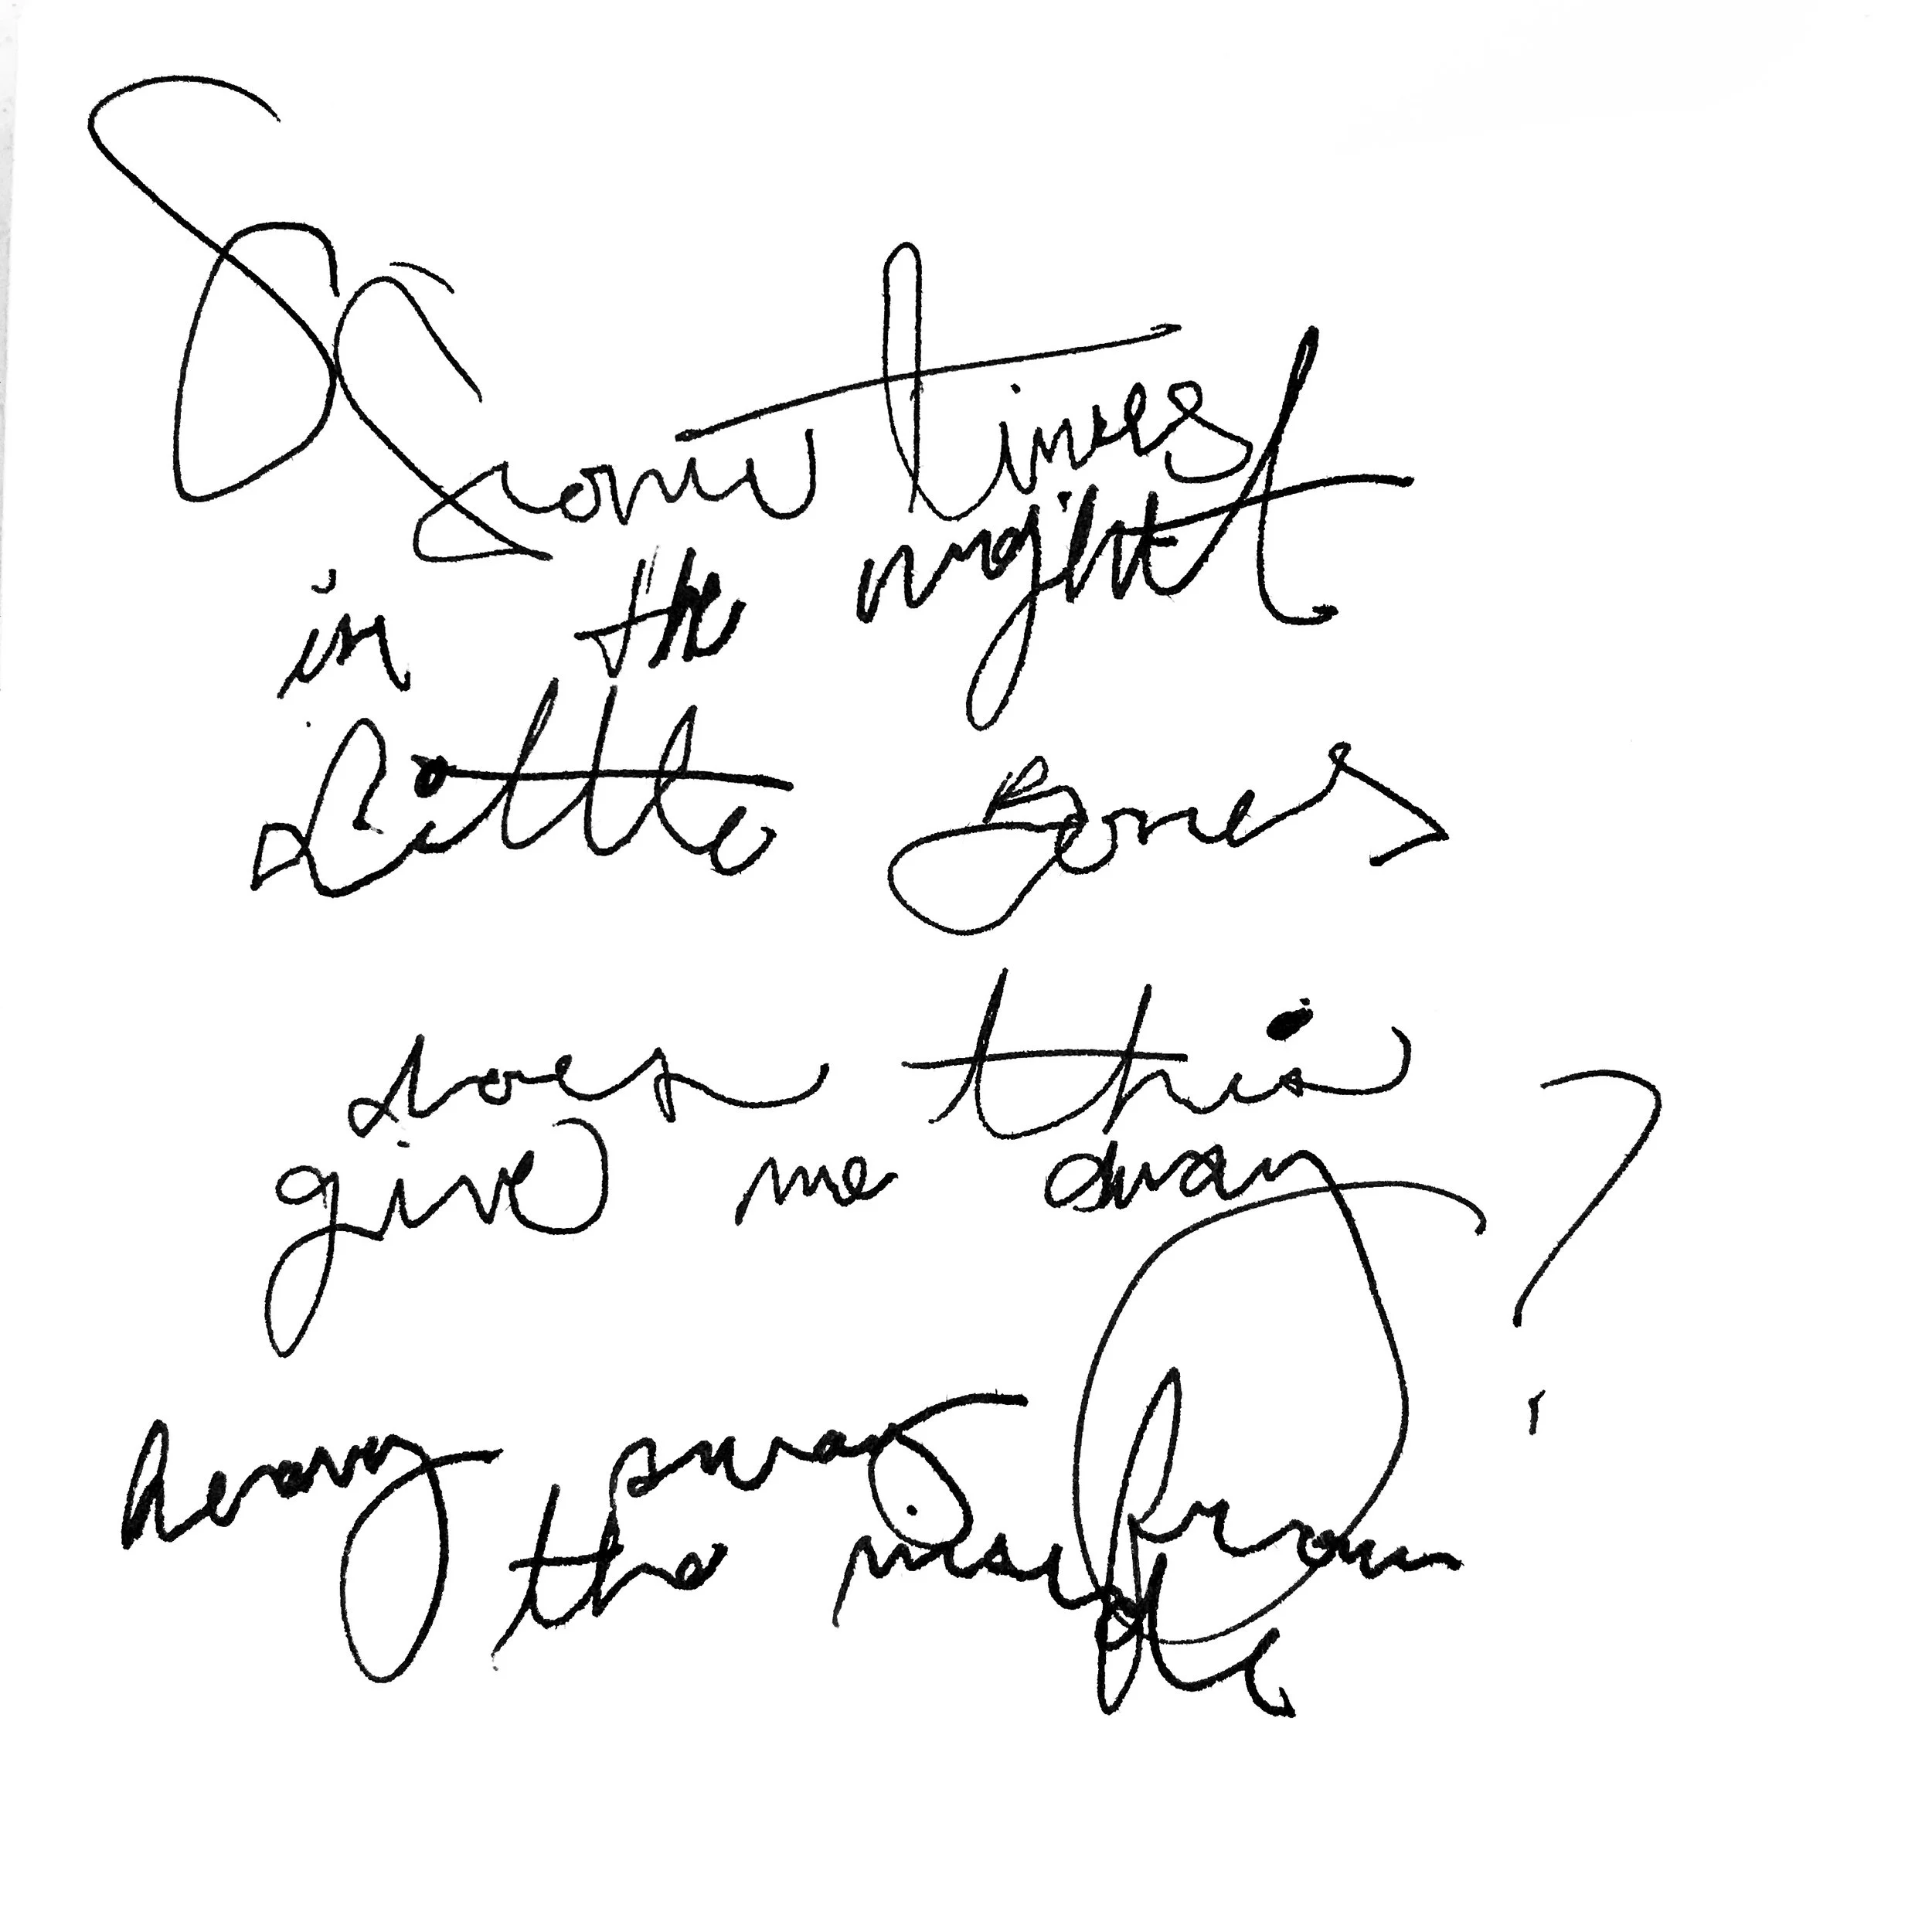 Sometimes
in the night
Little Bones
does this
give me away?
heavy away from
the